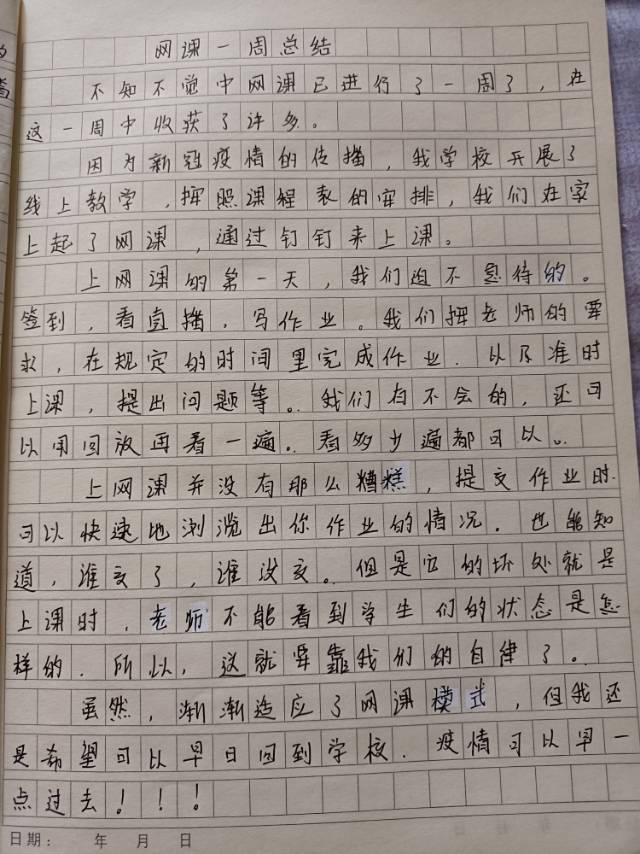 网课一周总结
不知不觉中网课已进行了一周了，在
这一周中收获了许多。
因为新冠疫情的传播，我学校开展了
线上教学，按照课程表的安排，我们在家
上起了网课，通过钉钉来上课。
上网课的第一天，我们迫不急待的。
签到，看直播，写作业。我们按老师的要
求，在规定的时间里完成作业．以及准时
上课，提出问题等。我们有不会的，还可
以用回放再看一遍。看多少遍都可以。
上网课并没有那么糟糕，提交作业时
可以快速地浏览出你作业的情况．也能知
道，谁交了，谁没交。但是它的坏处就是
上课时．老师不能看到学生们的状态是怎
样的．所以，这就要靠我们的自律了。
虽然，渐渐适应了网课模式，但我还
是希望可以早日回到学校．疫情可以早一
点过去！！！
日期： 年 月 日